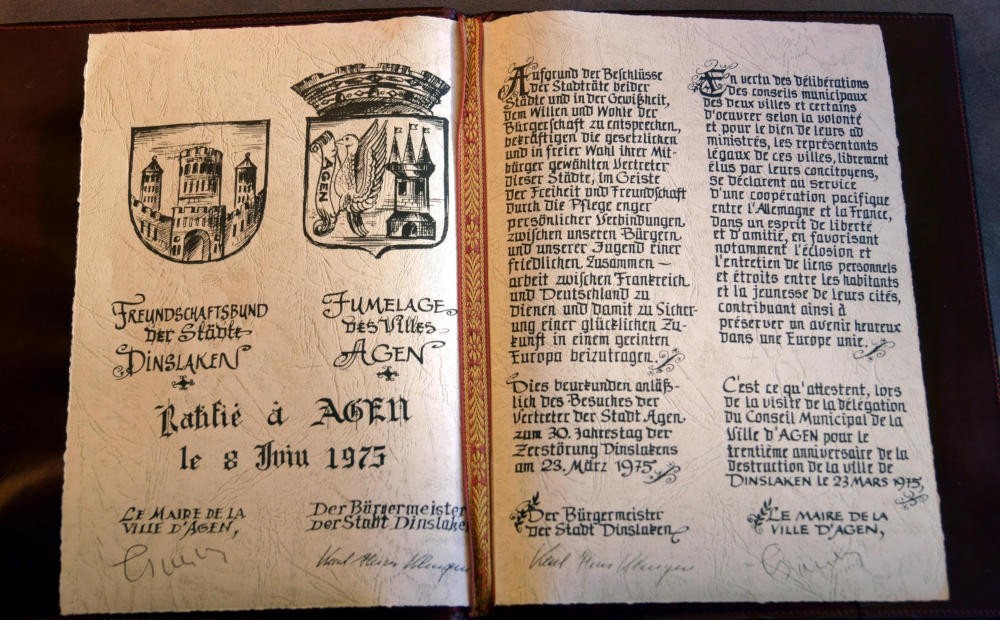 AGEN
FREUNDSCHAFTSBUND
der Städte
DINSLAKEN
JUMELAGE
DES VILLES
AGEN
Ratifié à AGEN
le 8 Juin 1975
LE MAIRE DE LA
VILLE D'AGEN,
Der Bürgermeister
der Stadt Dinslaken
Aufgrund der Beschlüsse
der Stadträte beider
Städte und in der Gewißheit,
dem Willen und Wohle der
Bürgerschaft zu entsprechen,
bekräftigen die gesetzlichen
und in freier Wahl ihrer Mit-
bürger gewählten Vertreter
dieser Städte, im Geiste
der Freiheit und Freundschaft
durch die Pflege enger
persönlicher Verbindungen
zwischen unseren Bürgern
und unserer Jugend einer
friedlichen Zusammen-
arbeit zwischen Frankreich
und Deutschland zu
dienen und damit zu Sicher-
ung einer glücklichen Zu-
kunft in einem geeinten
Europa beizutragen.
Dies beurkunden anläß-
lich des Besuches der
Vertreter der Stadt Agen
zum 30. Jahrestag der
Zerstörung Dinslakens
am 23. März 1975
Der Bürgermeister
der Stadt Dinslaken
En vertu des délibérations
des conseils municipaux
des deux villes et certains
d'oeuvrer selon la volonté
et pour le bien de leurs ad
ministrés, les représentants
légaux de ces villes, librement
élus par leurs concitoyens,
se déclarent au service
d'une coopération pacifique
entre l'Allemagne et la France,
dans un esprit de liberté
et d'amitié, en favorisant
notamment l'éclosion et
l'entretien de liens personnels
et étroits entre les habitants
et la jeunesse de leurs cités,
contribuant ainsi à
préserver un avenir heureux
dans une Europe unie.
C'est ce qu'attestent, lors
de la visite de la délégation
du Conseil Municipal de la
Ville d'AGEN pour le
trentième anniversaire de la
destruction de la ville de
DINSLAKEN LE 23 MARS 1975,
LE MAIRE DE LA
VILLE D'AGEN,